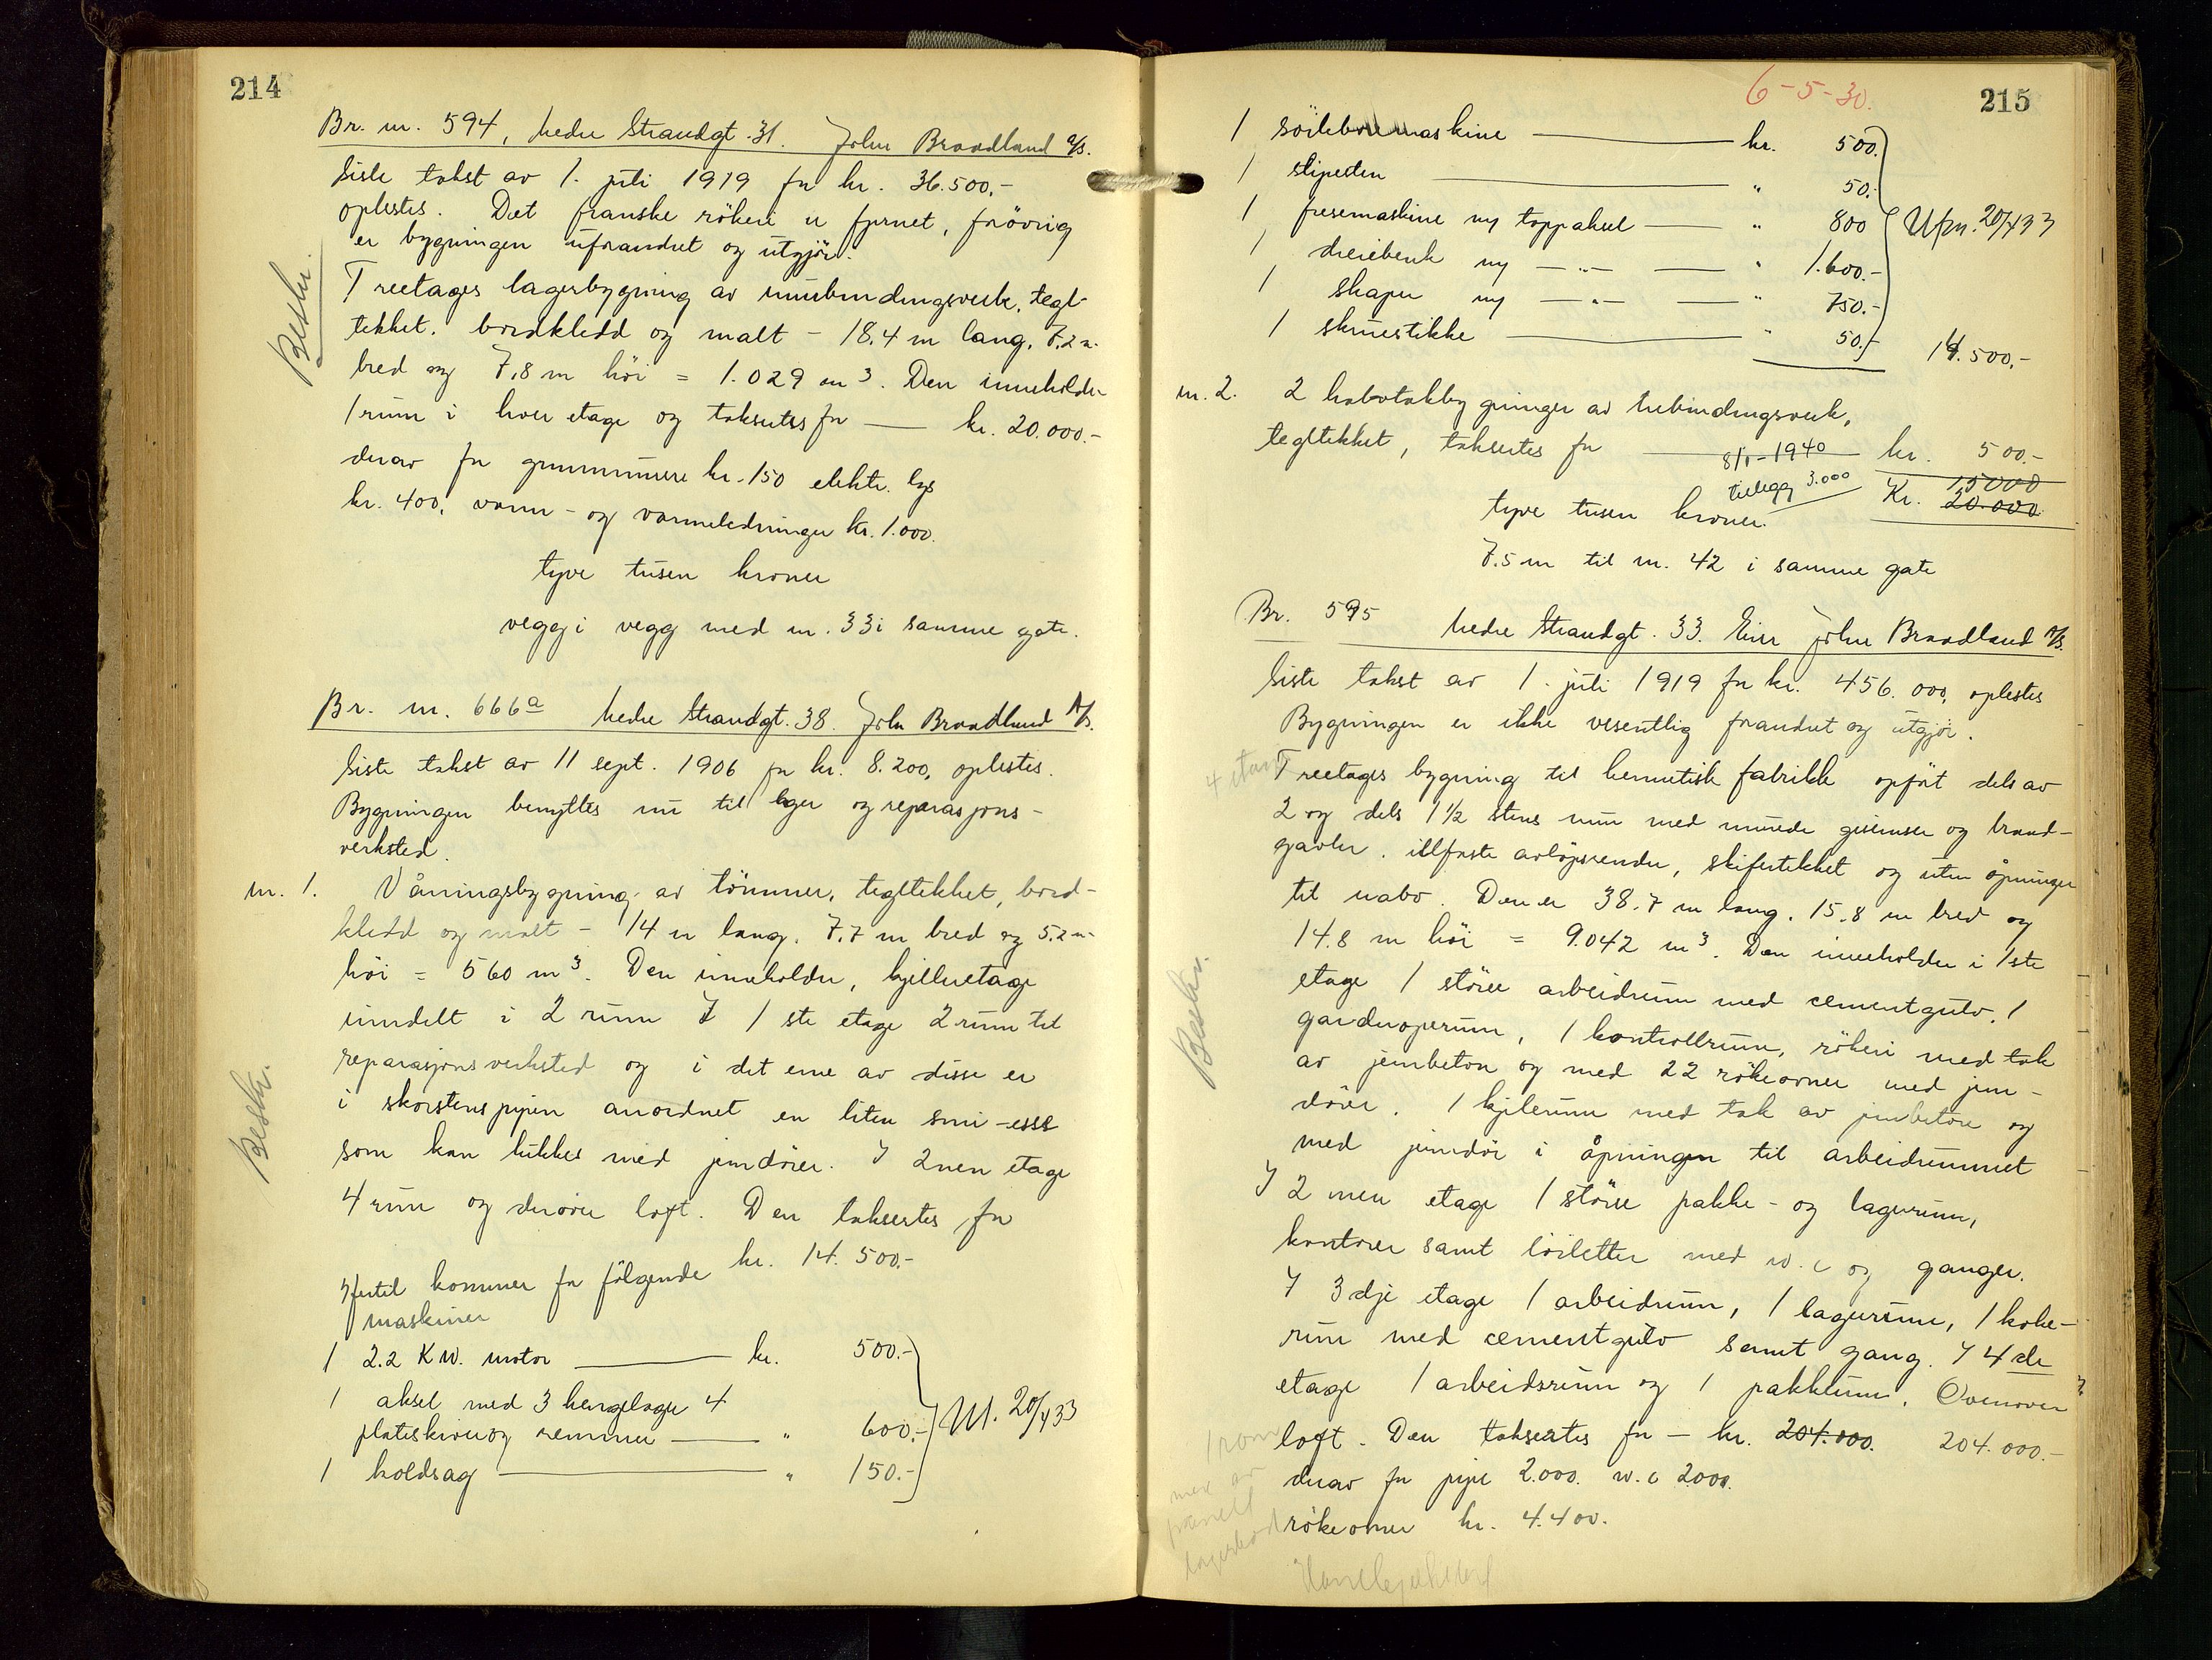 214
Br. nr. 594, Nedre Strandgt. 31. John Braadland A/S.
Siste takst av 1. juli 1919 for kr. 36.500,-
oplestes. Det franske rökeri er fjernet, forövrig
er bygningen uforandret og utgjör:
Beskr.
Treetages lagerbygning av murbindingsverk, tegl-
tekket, bordkledd og malt - 18.4 m lang, 7.2 m
bred og 7,8 m höi = 1.029 m³. Den inneholder
1 rum i hver etage og takseres for — kr. 20.000.-
derav for grunnmure kr. 150 elektr. lys
kr. 400, vann- og varmeledninger kr. 1.000.
tyve tusen kroner
vegg i vegg med nr. 33 i samme gate.
Br. nr. 666a Nedre Strandgt. 38. John Braadland A/S.
Siste takst av 11 sept. 1906 for kr. 8.200, oplestes.
Bygningen benyttes nu til lager og reparasjons-
verksted.
nr. 1. Våningsbygning av tömmer, tegltekket, bord-
kledd og malt - 14 m lang, 7,7 m bred og 5.2 m
höi = 560 m³. Den inneholder, kjelleretage
inndelt i 2 rum I 1ste etage 2 rum til
reparasjonsverksted og i det ene av disse er
Beskr.
i skorstenspipen anordnet en liten smi-esse
som kan lukkes med jerndörer. I 2nen etage
4 rum og derover loft. Den takseres for
kr. 14.500.-
Hertil kommer for fölgende
maskiner
1 2.2 KW. motor — kr. 500.-
1 aksel med 3 hengelager 4
plateskiver og remmer — " 600.-
Utf. 20/4 33
1 koldsag — " 150.-
6-5-30.
215
1 söileboremaskine — kr. 500.
1 slipesten — " 50.-
1 fresemaskine ny toppaksel — " 800
Utgn. 20/4 33
1 dreiebenk ny — " — " 1.600.-
1 shaper ny — " — " 750.-
1 skruestikke — " 50.-
14.500,-
nr. 2. 2 halvtakbygninger av trebindingsverk,
tegltekket, takseres for — kr. 500.-
8/1-1940
tillegg 3.000
15000
tyve tusen kroner. Kr. 20.000
7.5 m til nr. 42 i samme gate
Br. 595 Nedre Strandgt. 33. Eier John Braadland A/S.
Siste takst av 1. juli 1919 for kr. 456.000, oplestes
Bygningen er ikke vesentlig forandret og utgjör.
Treetages bygning til hermetisk fabrikk opfört dels av
2 og dels 1 1/2 stens mur med murede gesimser og brand-
gavler, illfaste avlöpsrender, skifertekket og uten åpninger
til nabo. Den er 38.7 m lang, 15.8 m bred og
14.8 m höi = 9.042 m³. Den inneholder i 1ste
etage 1 större arbeidsrum med cementgulv, 1
Beskr.
garderoperum, 1 kontrollrum, rökeri med tak
av jernbeton og med 22 rökeovner med jern-
dörer. 1 kjölerum med tak av jernbeton og
med jerndör i åpningen til arbeidsrummet
I 2nen etage 1 större pakke- og lagerrum,
kontorer samt toiletter med w.c og ganger.
I 3dje etage 1 arbeidsrum, 1 lagerrum, 1 koke-
rum med cementgulv samt gang. I 4de
etage 1 arbeidsrum og 1 pakkerum. Ovenover
loft. Den takseres for — kr. 204.000. 204.000.-
derav for pipe 2.000. w.c 2000.
rökeovner kr. 4.400.